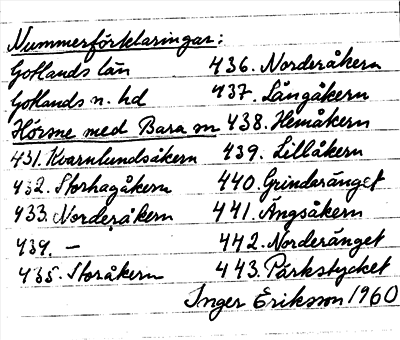 Nummerförklaringar:
Gotlands län 436. Norderåkern
Gotlands n. hd 437. Långåkern
Hörsne med Bara sn 438. Hemåkern
431. Kvarnlundsåkern 439. Lillåkern
432. Storhagåkern 440. Grindaränget
433. Norderåkern 441. Ängsåkern
434. – 442. Norderänget
435. Storåkern 443. Parkstycket
Inger Eriksson 1960